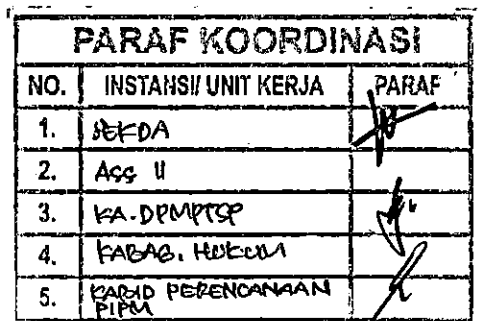 PARAF KOORDINASI
NO. INSTANSI/ UNIT KERJA PARAF
1. SEKDA
2. Ass II
3. KA. DPMPTSP
4. KABAG. HUKUM
5. KABID PERENCANAAN
PIPM